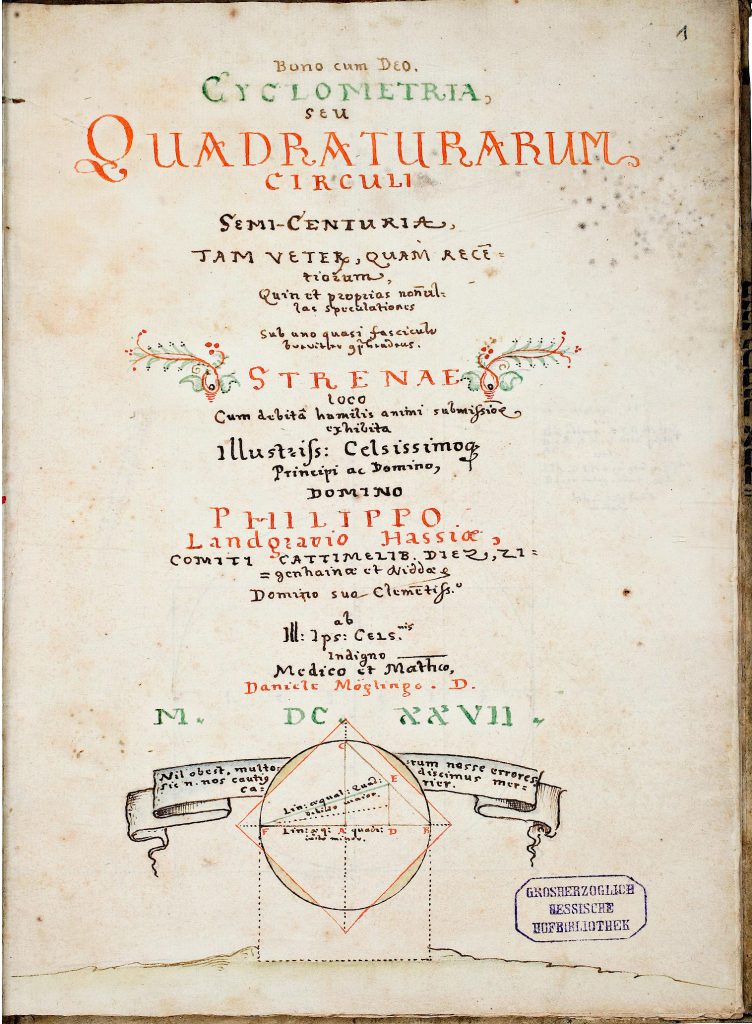 1
Bono cum Deo.
CYCLOMETRIA,
SEU
QUADRATURARUM
CIRCULI
SEMI-CENTURIA,
TAM VETER, QUAM RECĒ=
tiorum,
Quin et proprias nonēul=
las speculationes
Sub uno quasi fasciculo
breviter
STRENAE
loco
Cum debitā humilis animi submissiōe
exhibita
Illustriss: Celsissimoq
Principi ac Domino,
DOMINO
PHILIPPO
Landgravio Hassiæ,
COMITI CATTIMELIB. DIEZ, ZI=
=genhainæ et Niddæ
Domino suo Clemētiss.o
ab
Ill: Ips: CELS.nis
Indigno
Medico et Matheo,
Daniele Möglingo. D.
M. DC. XXVII.
Nil obest, multo
rum nosse errores
sic n. nos cautiq
discimus mer-
ca=
rier.
C
E
Lin: æqual: Quad:
debito maior.
F A D B
Lin: æq: quadr:
iusto minor.
GROSHERZOGLICH
HESSISCHE
HOFBIBLIOTHEK